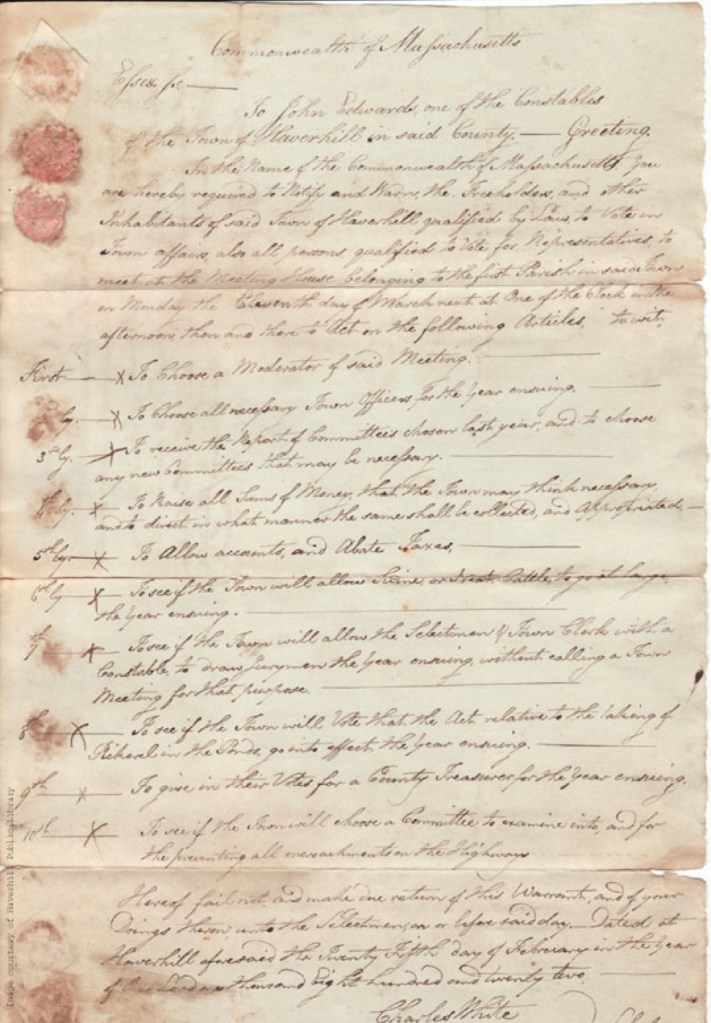 Commonwealth of Massachusetts
Essex ss.
To John Edwards, one of the Constables
of the Town of Haverhill in said County. — Greeting.
In the Name of the Commonwealth of Massachusetts You
are hereby required to Notify and Warn, the Freeholders, and other
Inhabitants of said Town of Haverhill qualified by Law, to Vote in
Town affairs, also all persons qualified to Vote for Representatives, to
meet at the Meeting House belonging to the first Parish in said Town
on Monday the Eleventh day of March next at One of the Clock in the
afternoon, then and there to Act on the following Articles, to wit,
First — X To Choose a Moderator of said Meeting.
ly. X To Choose all necessary Town Officers for the Year ensuing.
3dly. X To receive the Report of Committees chosen last year, and to choose
any new Committees that may be necessary.
X To Raise all Sums of Money, that the Town may think necessary,
and to direct in what manner the same shall be collected, and Appropriated. —
5thly. X To Allow accounts, and Abate Taxes.
6thly X To see if the Town will allow Swine, or Neat Cattle, to go at large,
the Year ensuing.
7th X To see if the Town will allow the Selectmen & Town Clerk with a
Constable, to draw Jurymen the Year ensuing, without calling a Town
Meeting for that purpose.
8th X To see if the Town will Vote that the Act relative to the taking of
Pickerel in the Ponds, go into effect the Year ensuing.
9th X To give in their Votes for a County Treasurer for the Year ensuing.
10th X To see if the Town will choose a Committee to examine into, and for
the preventing all encroachments on the Highways
Hereof fail not, and make due return of this Warrant, and of your
Doings thereon unto the Selectmen, on or before said day. — Dated at
Haverhill aforesaid the Twenty Fifth day of February in the Year
of Our Lord one thousand Eight hundred and twenty two.
Charles White
Image courtesy of Haverhill Public Library